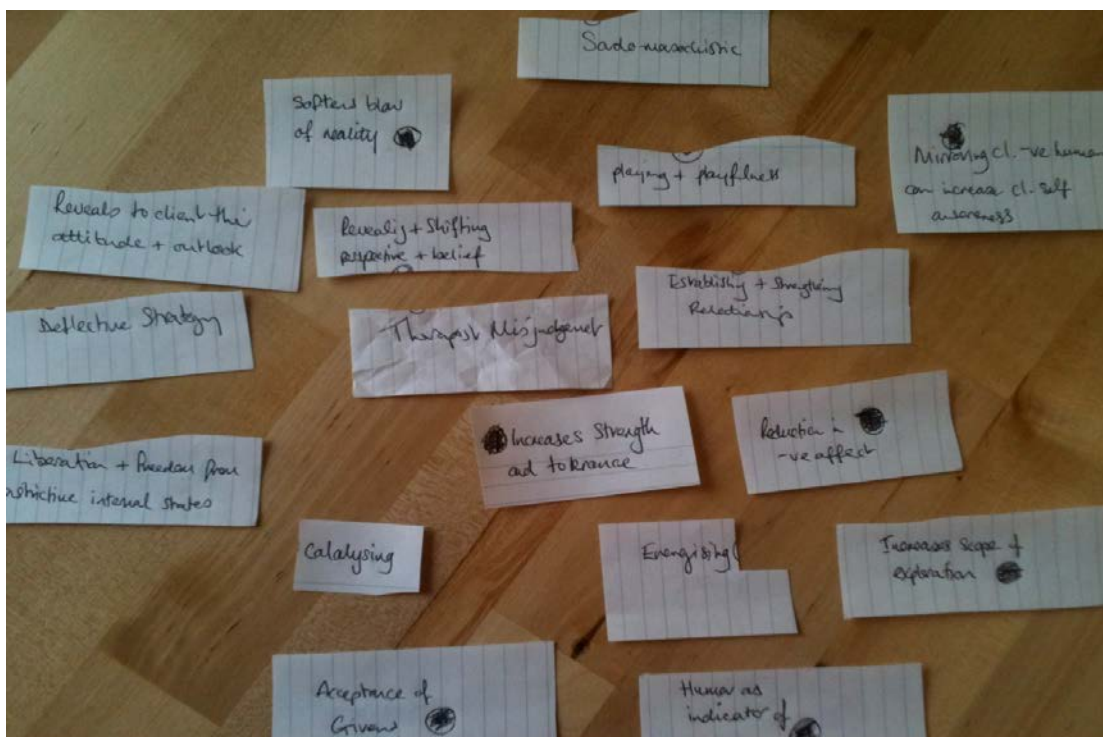 Sado-masochistic
Softens blow
of reality
playing + playfulness
Mirroring cl. -ve humour
can increase cl. self
awareness
Reveals to client their
attitude + outlook
Revealing + Shifting
perspective + belief
Establishing + Strengthening
Relationship
Deflective Strategy
Therapist Misjudgement
Increases Strength
and tolerance
Reduction in
-ve affect
Liberation + Freedom from
internal states
Catalysing
Energising
Increases scope of
exploration
Acceptance of
Givens
Humor as
indicator of